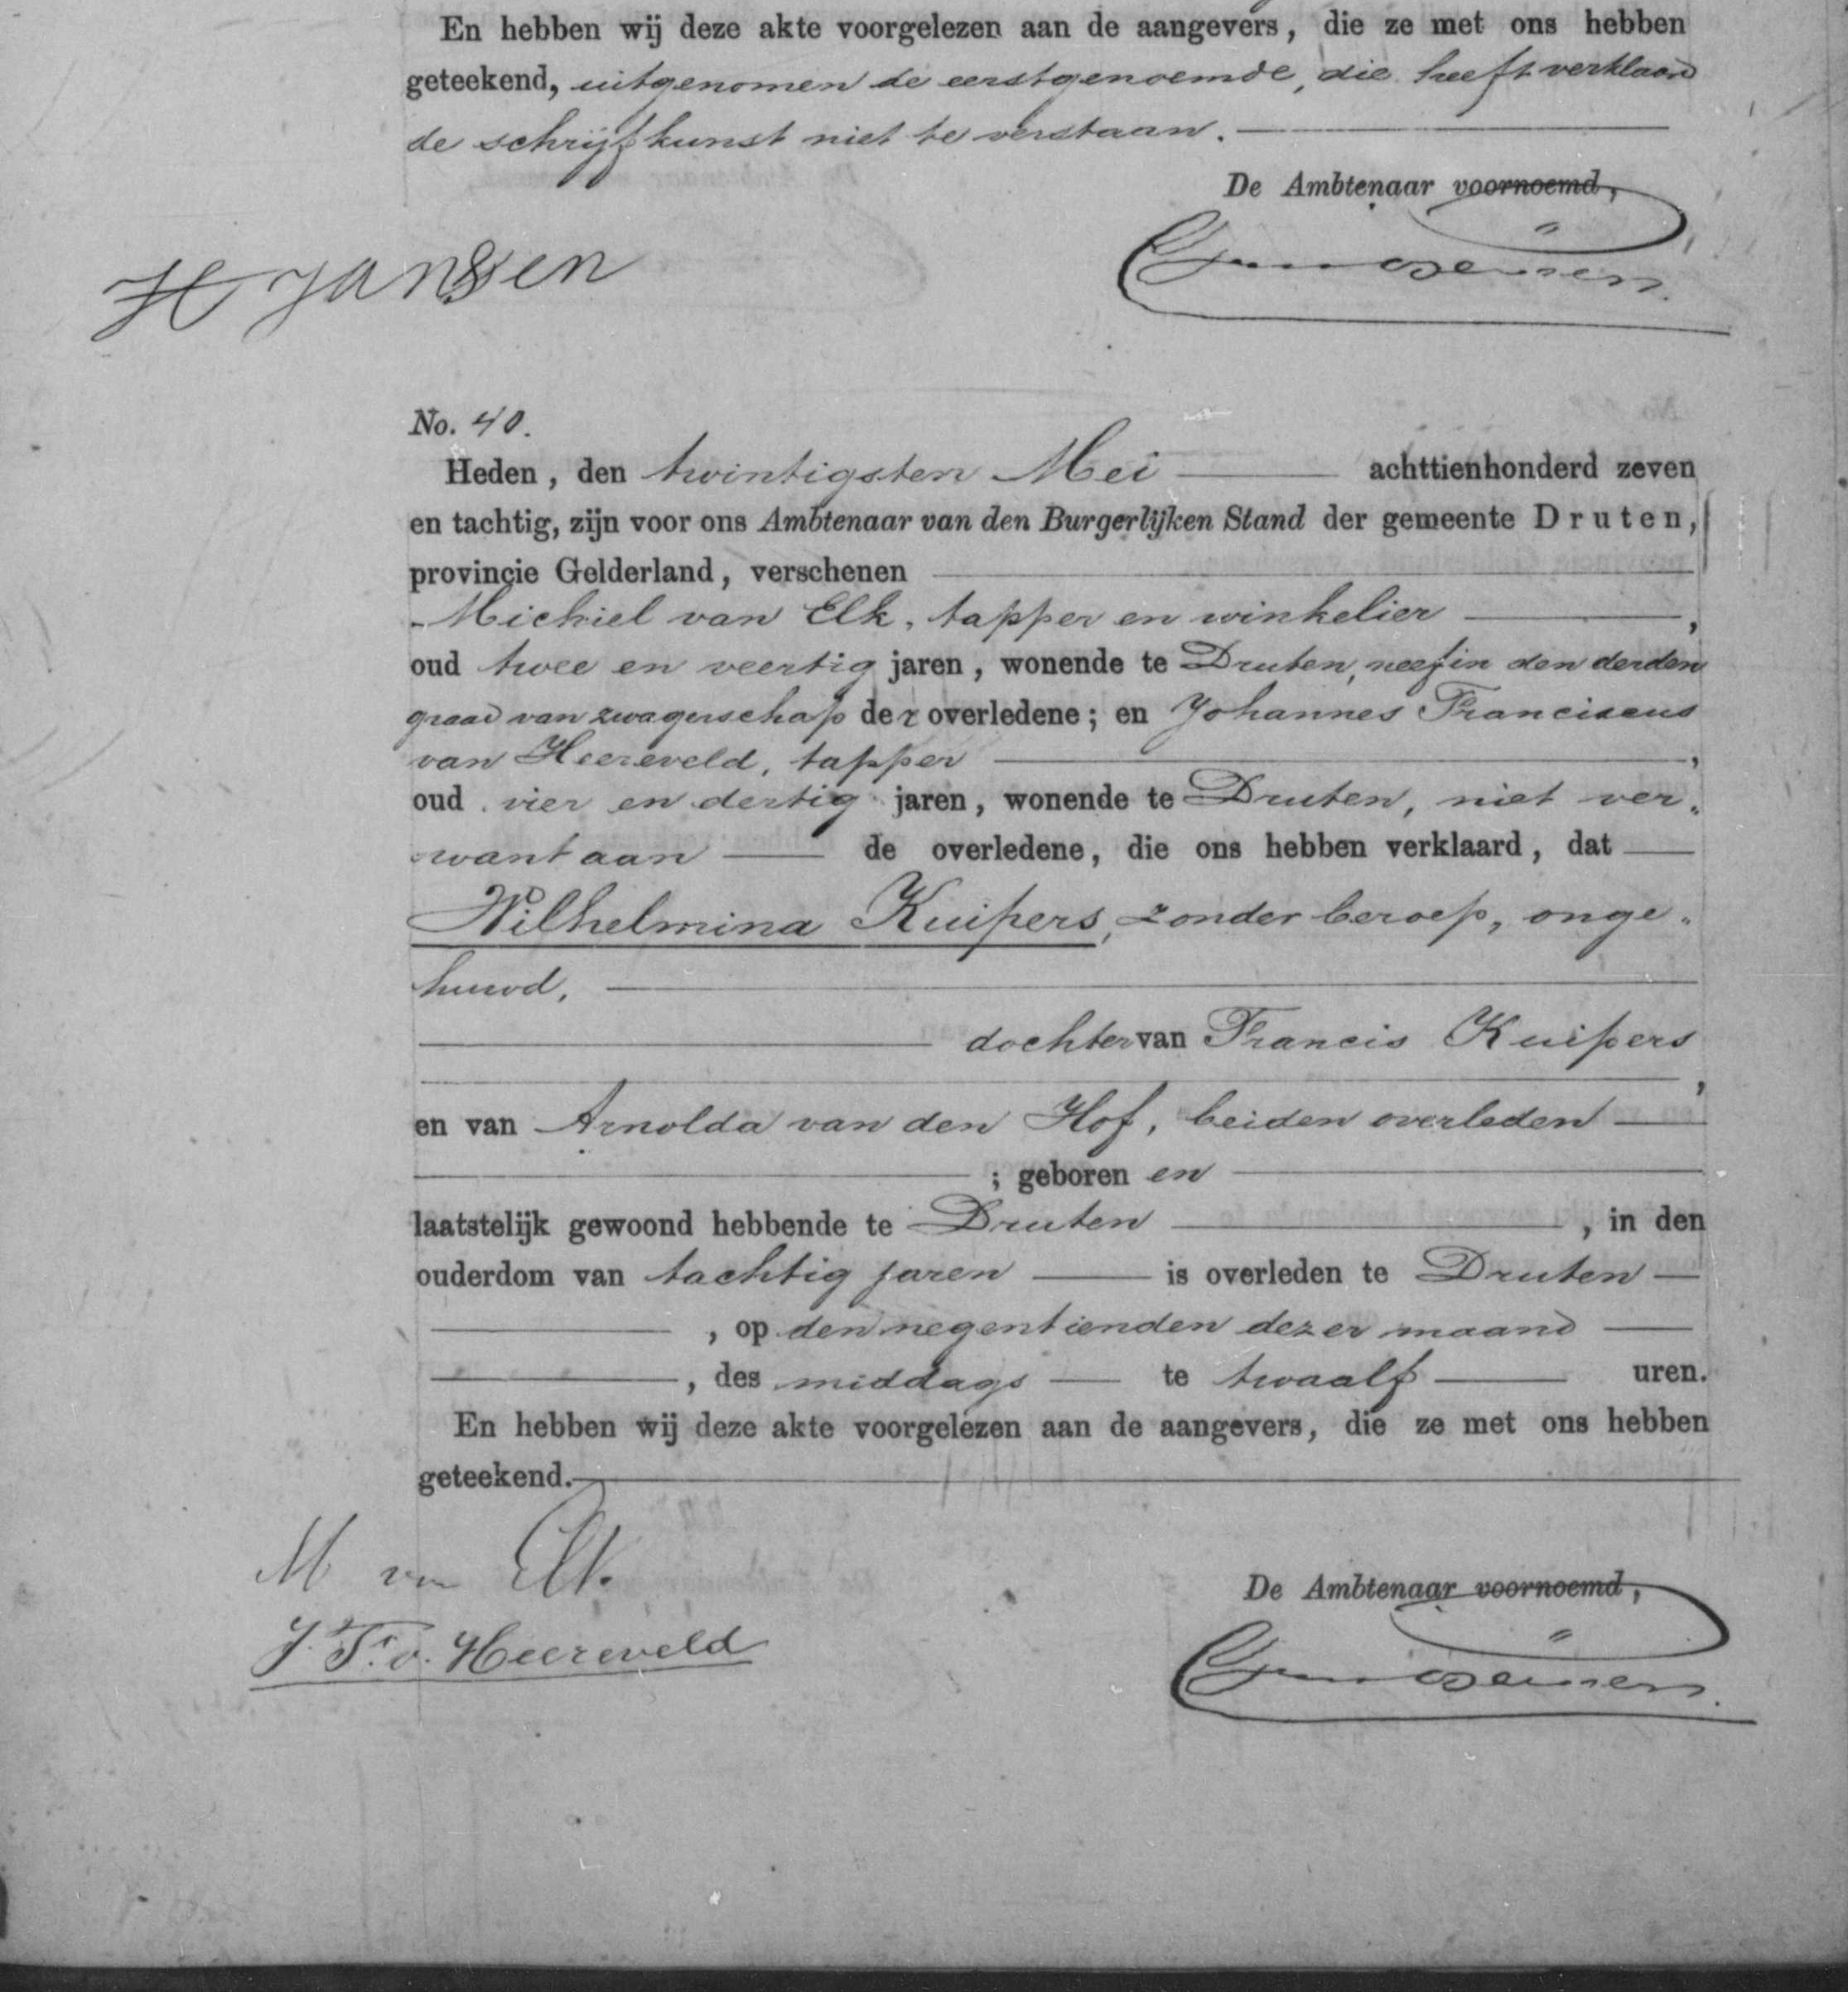 En hebben wij deze akte voorgelezen aan de aangevers, die ze met ons hebben
geteekend, uitgenomen de eerstgenoemde, die heeft verklaard
de schrijfkunst niet te verstaan.
De Ambtenaar voornoemd,
H Jansen
No. 40.
Heden, den twintigsten Mei achttienhonderd zeven
en tachtig, zijn voor ons Ambtenaar van den Burgerlijken Stand der gemeente Druten,
provincie Gelderland, verschenen
Michiel van Elk, tapper en winkelier,
oud twee en veertig jaren, wonende te Druten, neef in den derden
graad van zwagerschap der overledene; en Johannes Franciscus
van Heereveld, tapper,
oud vier en dertig jaren, wonende te Druten, niet ver„
want aan de overledene, die ons hebben verklaard, dat
Wilhelmina Kuipers, zonder beroep, onge„
huwd,
dochter van Francis Kuipers
,
en van Arnolda van den Hof, beiden overleden
; geboren en
laatstelijk gewoond hebbende te Druten, in den
ouderdom van tachtig jaren is overleden te Druten
, op den negentienden dezer maand
, des middags te twaalf uren.
En hebben wij deze akte voorgelezen aan de aangevers, die ze met ons hebben
geteekend.
M van Elk
J. Fr. v. Heereveld
De Ambtenaar voornoemd,